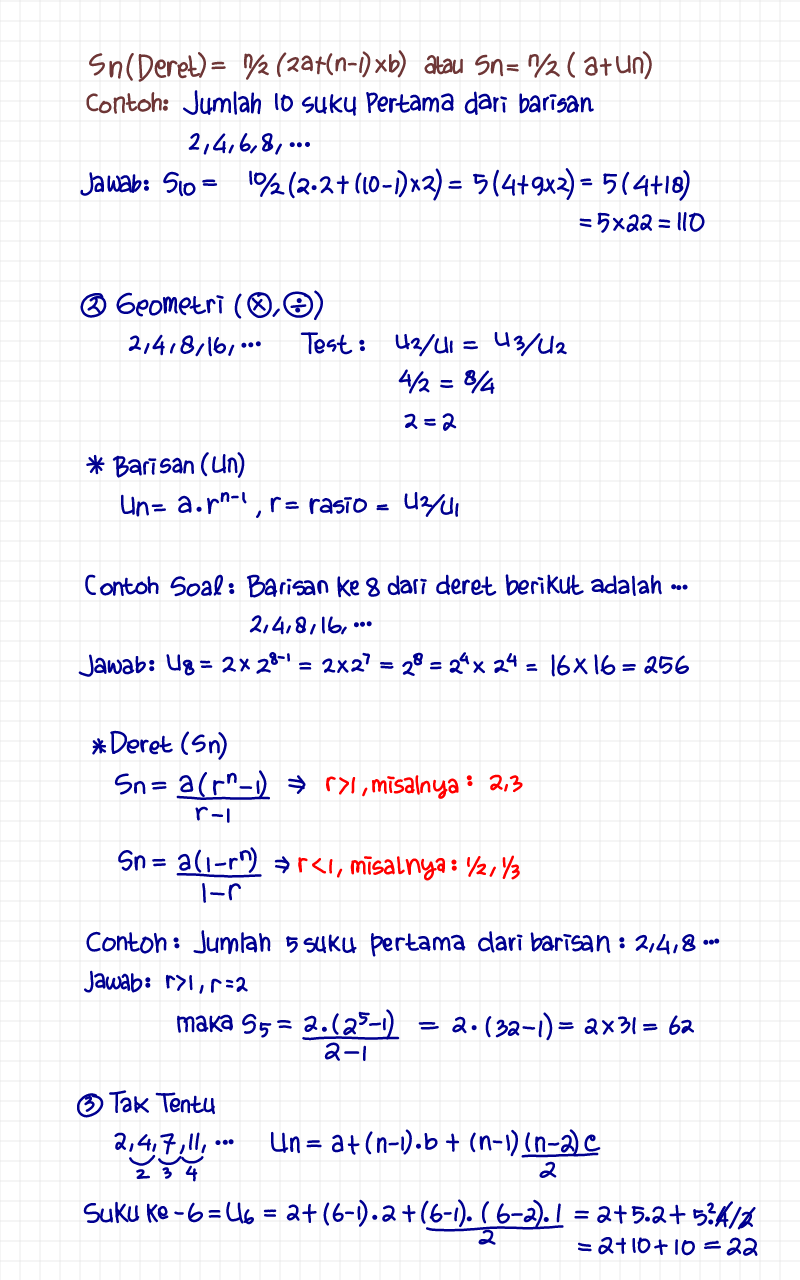 Sn(Deret) = n/2 (2a+(n-1)xb) atau Sn = n/2 (a+Un)
Contoh: Jumlah 10 suku Pertama dari barisan
2,4,6,8,...
Jawab: S₁₀ = 10/2 (2·2+(10-1)x2) = 5(4+9x2) = 5(4+18)
= 5x22 = 110
② Geometri (ⓧ,÷)
2,4,8,16,... Test: U2/U1 = U3/U2
4/2 = 8/4
2 = 2
* Barisan (Un)
Un = a.rⁿ⁻¹, r = rasio = U2/U1
Contoh Soal: Barisan ke 8 dari deret berikut adalah ...
2,4,8,16,...
Jawab: U8 = 2 x 2⁸⁻¹ = 2x2⁷ = 2⁸ = 2⁴ x 2⁴ = 16 x 16 = 256
* Deret (Sn)
Sn = a(rⁿ-1) ⇒ r>1, misalnya: 2,3
r-1
Sn = a(1-rⁿ) ⇒ r<1, misalnya: 1/2, 1/3
1-r
Contoh: Jumlah 5 suku pertama dari barisan: 2,4,8 ...
Jawab: r>1, r=2
maka S5 = 2.(2⁵-1) = 2.(32-1) = 2x31 = 62
2-1
③ Tak Tentu
2,4,7,11,... Un = a+(n-1).b + (n-1)(n-2)c
2 3 4 2
Suku ke-6 = U6 = 2+(6-1).2+(6-1).(6-2).1 = 2+5.2+5.²4/2
2 = 2+10+10 = 22